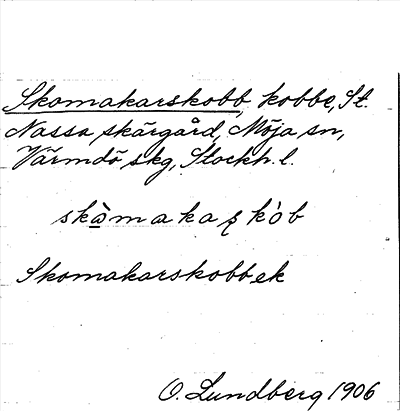 Skomakarskobb, kobbe, St.
Nassa skärgård, Möja sn,
Värmdö skg, Stockh. l.
skàmakaʂkòb
Skomakarskobbek
O. Lundberg 1906